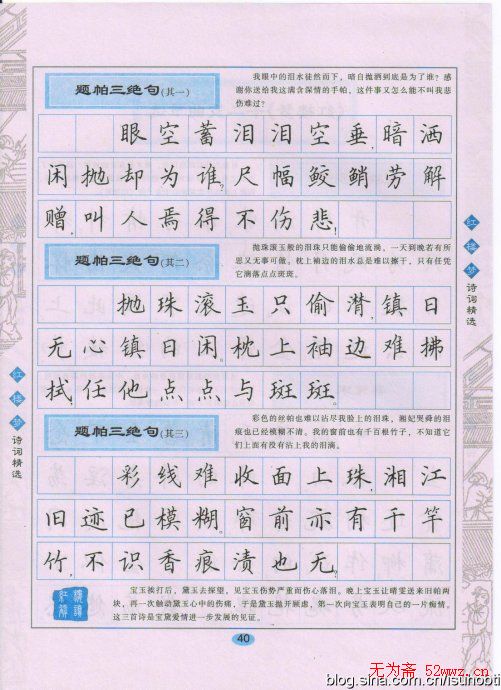 题帕三绝句(其一)
我眼中的泪水徒然而下，暗自抛洒到底是为了谁？感
谢你送给我这满含深情的手帕，这件事又怎么能不叫我悲
伤难过？
眼空蓄泪泪空垂，暗洒
闲抛却为谁？尺幅鲛鮹劳解
赠，叫人焉得不伤悲！
题帕三绝句(其二)
抛珠滚玉般的泪珠只能偷偷地流淌，一天到晚若有所
思又无事可做。枕上袖边的泪水总是难以擦干，只有任凭
它滴落点点斑斑。
抛珠滚玉只偷潸，镇日
无心镇日闲。枕上袖边难拂
拭，任他点点与斑斑。
题帕三绝句(其三)
彩色的丝帕也难以沾尽我脸上的泪珠，湘妃哭舜的泪
痕也已经模糊不清。我的窗前也有千百根竹子，不知道它
们上面有没有沾上我的泪滴。
彩线难收面上珠，湘江
旧迹已模糊。窗前亦有千竿
竹，不识香痕渍也无。
宝玉挨打后，黛玉去探望，见宝玉伤势严重而伤心落泪。晚上宝玉让晴雯送来旧帕两
块，再一次触动黛玉心中的伤痛，于是黛玉抛开顾虑，第一次向宝玉表明自己的一片痴情。
这三首诗是宝黛爱情进一步发展的见证。
红楼梦
诗词精选
红楼梦
诗词精选
40
无为斋 52wwz.cn
blog.sina.com.cn/lsunobti